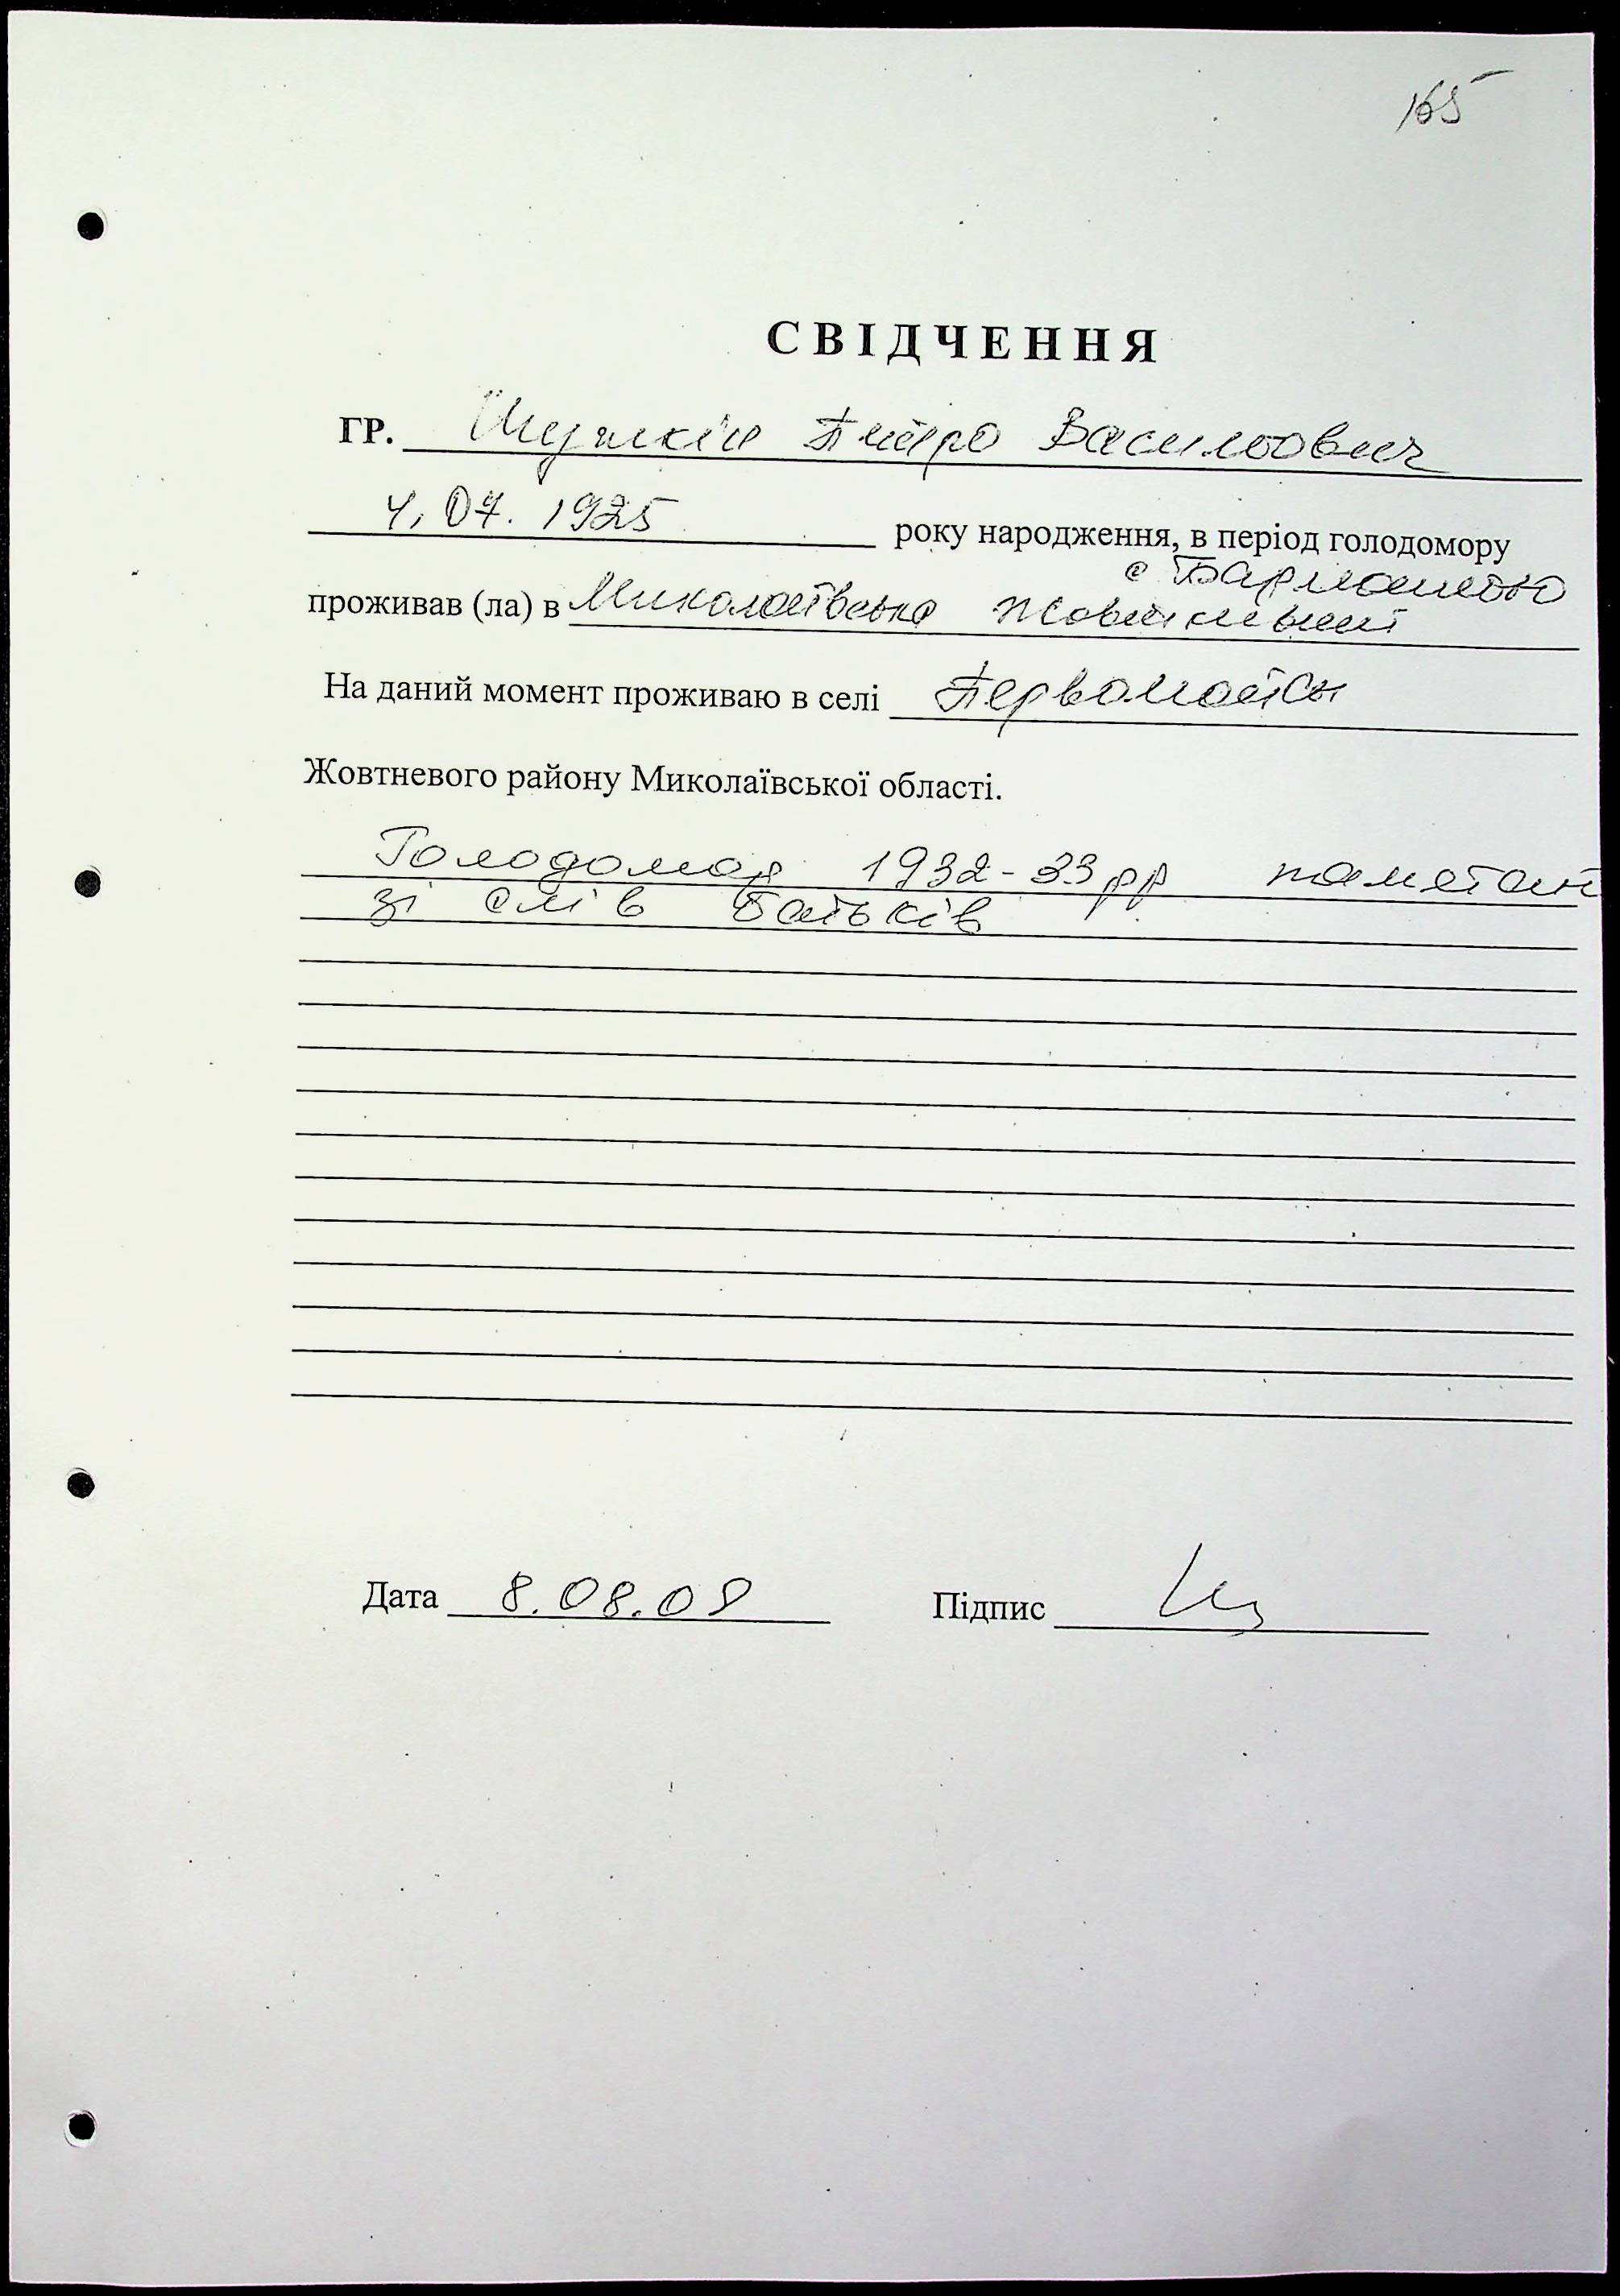 165
СВІДЧЕННЯ
ГР. Петро Васильович
4.07.1925 року народження, в період голодомору
с Бармашово
проживав (ла) в Миколаївська Жовтневий
На даний момент проживаю в селі Первомайськ
Жовтневого району Миколаївської області.
Голодомор 1932-33 рр
зі слів батьків
Дата 8.08.08 Підпис